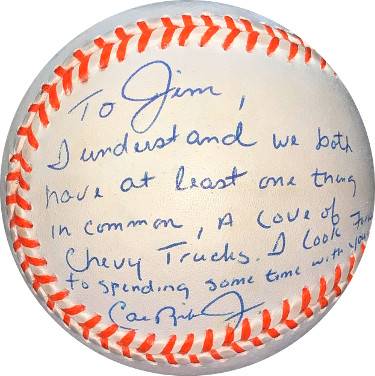 To Jim,
I understand we both
have at least one thing
in common, A Love of
Chevy Trucks. I Look
to spending some time with you
Cal Ripken Jr